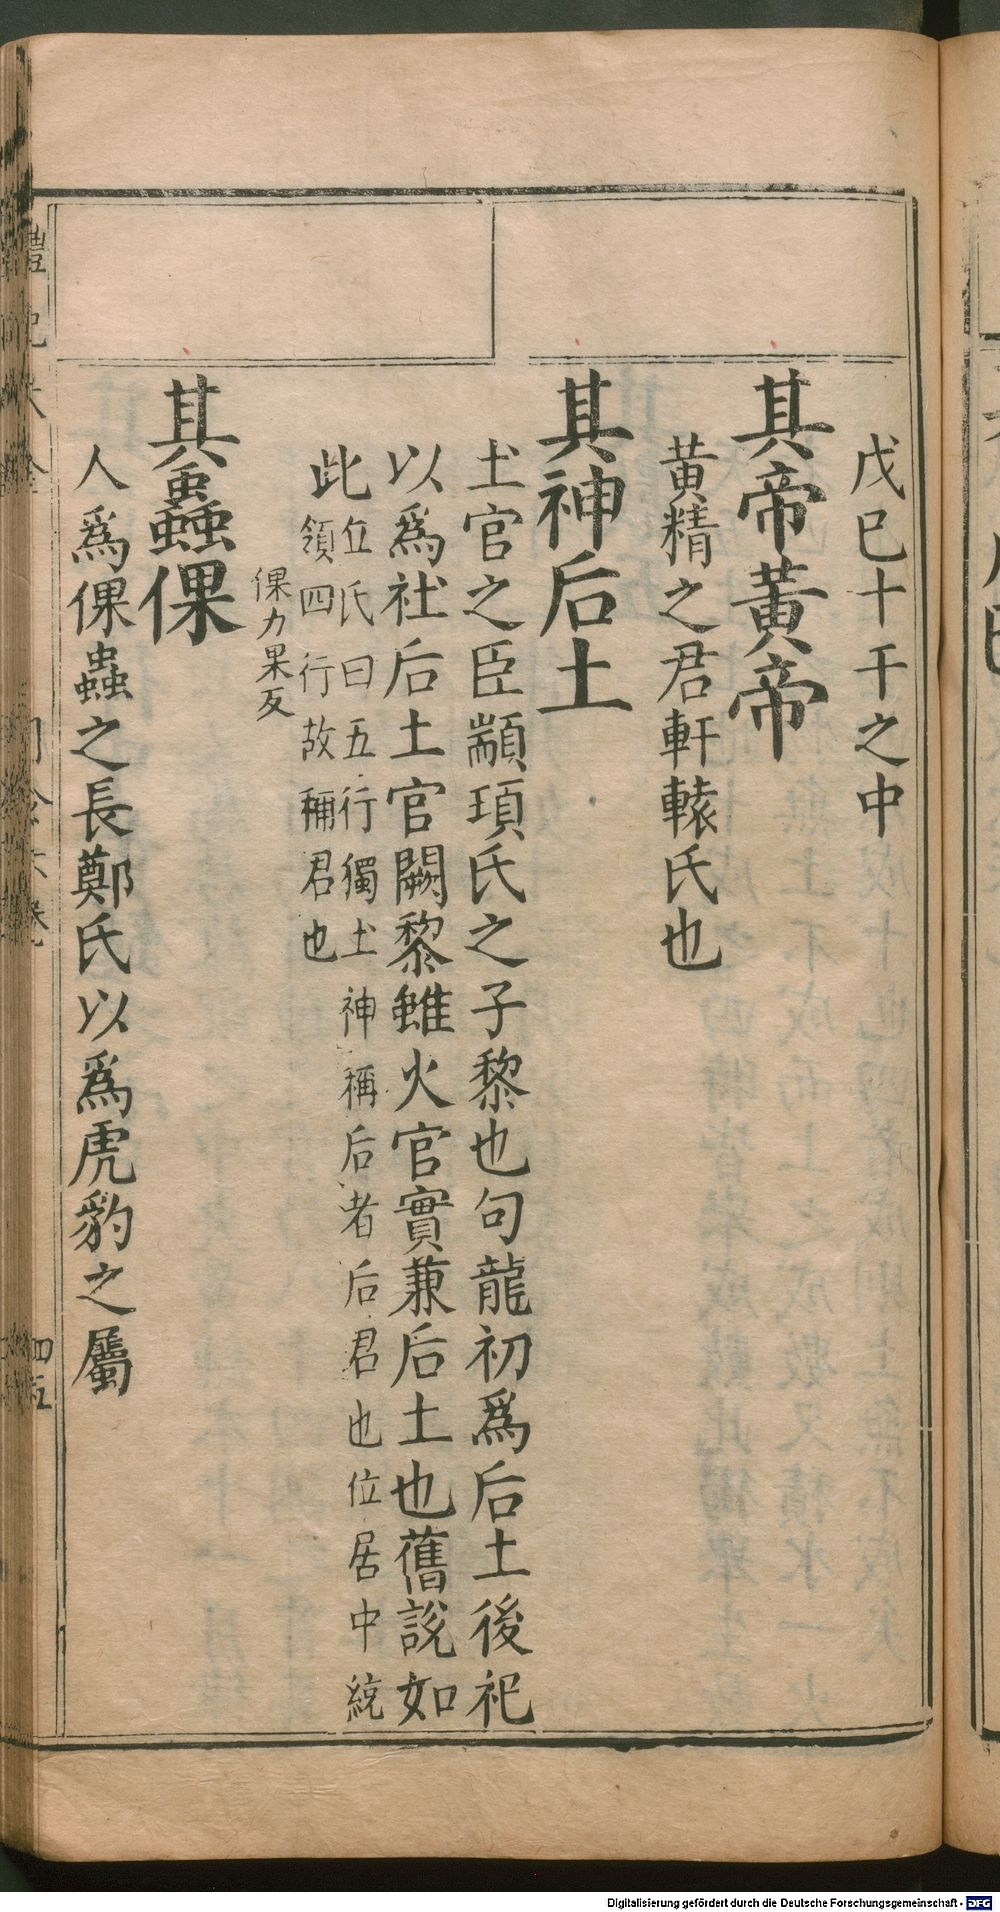 戊巳十干之中
其帝黃帝
黃精之君軒轅氏也
其神后土
土官之臣顓頊氏之子黎也句龍初爲后土後祀
以爲社后土官闕黎雖火官實兼后土也舊說如
此
丘氏曰五行獨土神稱后者后君也位居中統
領四行故稱君也
倮力果反
其蟲倮
人爲倮蟲之長鄭氏以爲虎豹之屬
四五
Digitalisierung gefördert durch die Deutsche Forschungsgemeinschaft - DFG